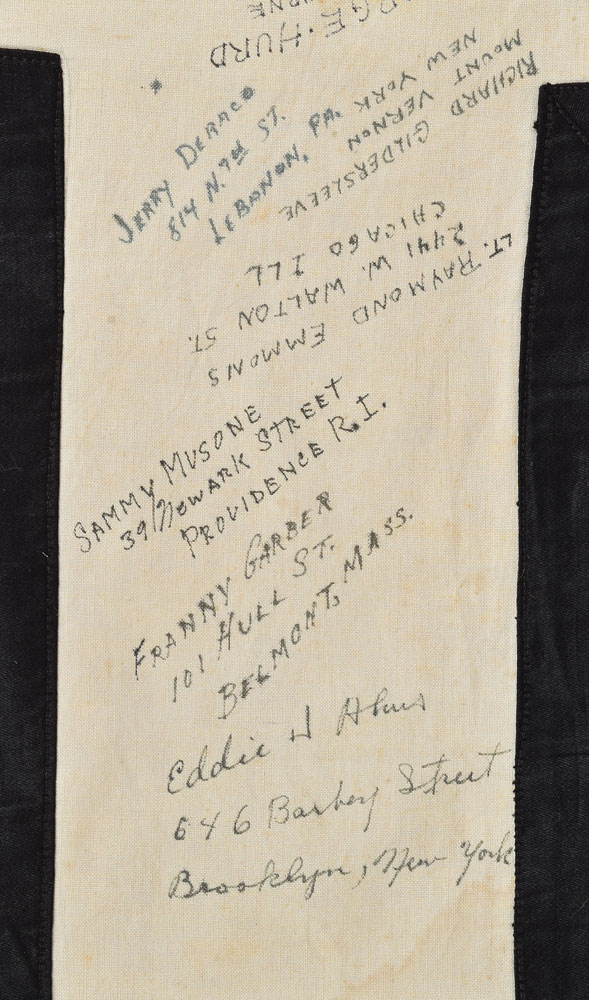 HURD
JERRY DERACO
814 N. 7th ST.
LEBANON, PA.
RICHARD GILDERSLEEVE
MOUNT VERNON
NEW YORK
LT. RAYMOND EMMONS
2441 W. WALTON ST.
CHICAGO ILL
SAMMY MUSONE
39 Newark STREET
PROVIDENCE R.I.
FRANNY GARBER
101 HULL ST.
BELMONT, MASS.
Eddie J
646 Barbey Street
Brooklyn, New York